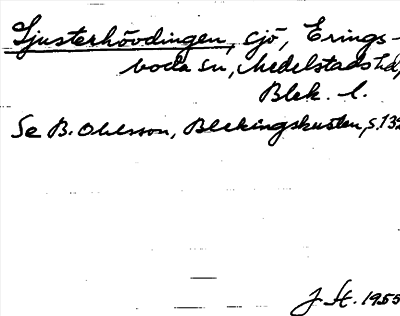 Ljusterhövdingen, sjö, Erings-
boda sn, Medelstads hd,
Blek. l.
Se B. Ohlsson, Blekingskusten, s. 132
J. St. 1955